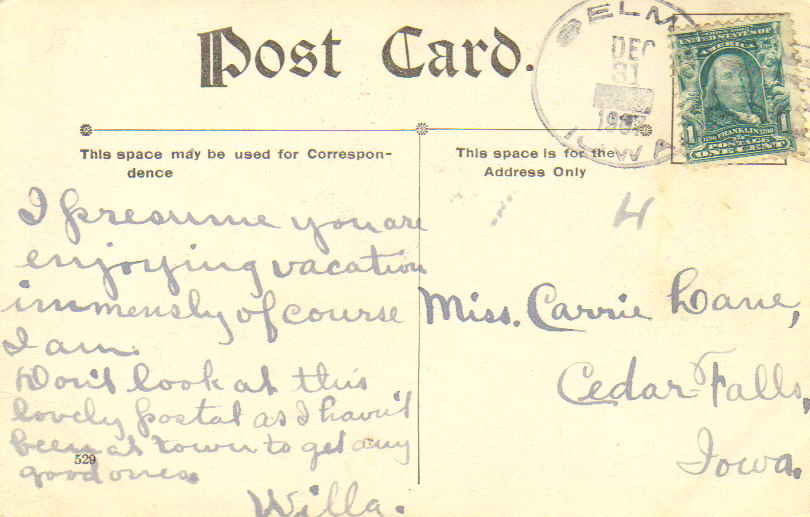 Post Card.
ELM
DEC
31
1907
IOWA
UNITED STATES OF
AMERICA
1 FRANKLIN 1
POSTAGE
ONE CENT
This space may be used for Correspon-
dence
This space is for the
Address Only
4
I presume you are
enjoying vacation
immensly of course
I am.
Don't look at this
lovely postal as I havn't
been at town to get any
good ones.
Willa.
529
Miss. Carrie Lane,
Cedar-Falls,
Iowa.